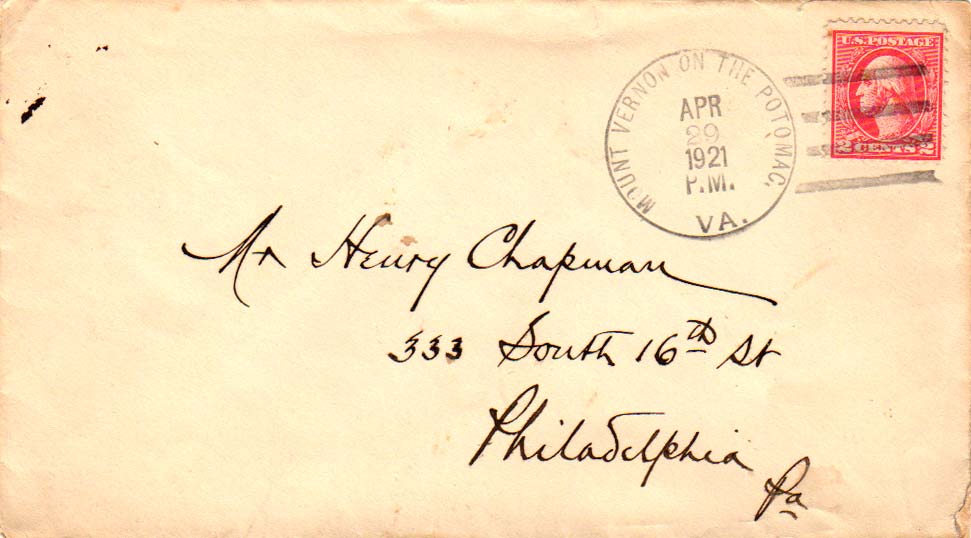 U.S. POSTAGE
2 CENTS 2
MOUNT VERNON ON THE POTOMAC,
APR
29
1921
P.M.
VA.
Mr Henry Chapman
333 South 16th St
Philadelphia
Pa